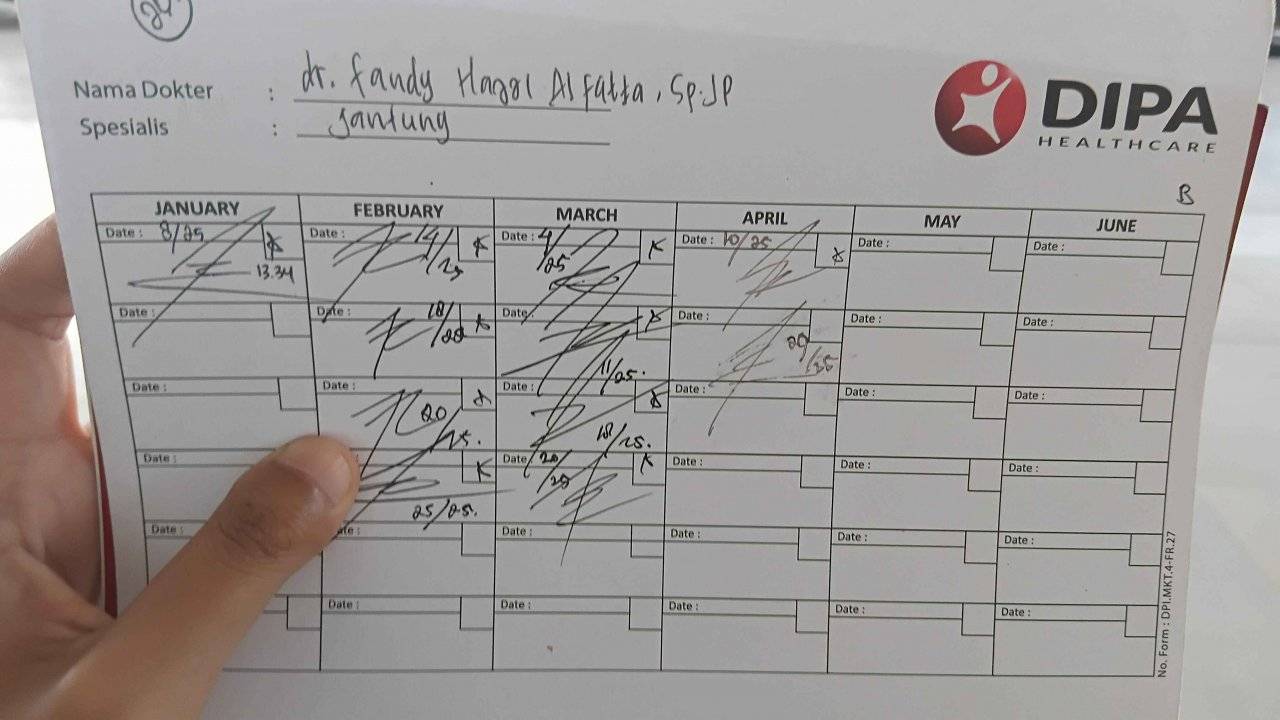 24
Nama Dokter : dr. Fandy Hazzel Alfatta, Sp.JP
Spesialis : Jantung
DIPA
HEALTHCARE
B
JANUARY FEBRUARY MARCH APRIL MAY JUNE
Date : 8/25 Date : 14/25 Date : 4/25 Date : 10/25 Date : Date :
13.34
Date : Date : 18/25 Date : 11/25. Date : 29/25 Date : Date :
Date : Date : 20/25. Date : 18/25. Date : Date : Date :
Date : 25/25. Date : 20/25 Date : Date : Date :
Date : Date : Date : Date : Date :
Date : Date : Date : Date : Date :
No. Form : DPI.MKT.4-FR.27